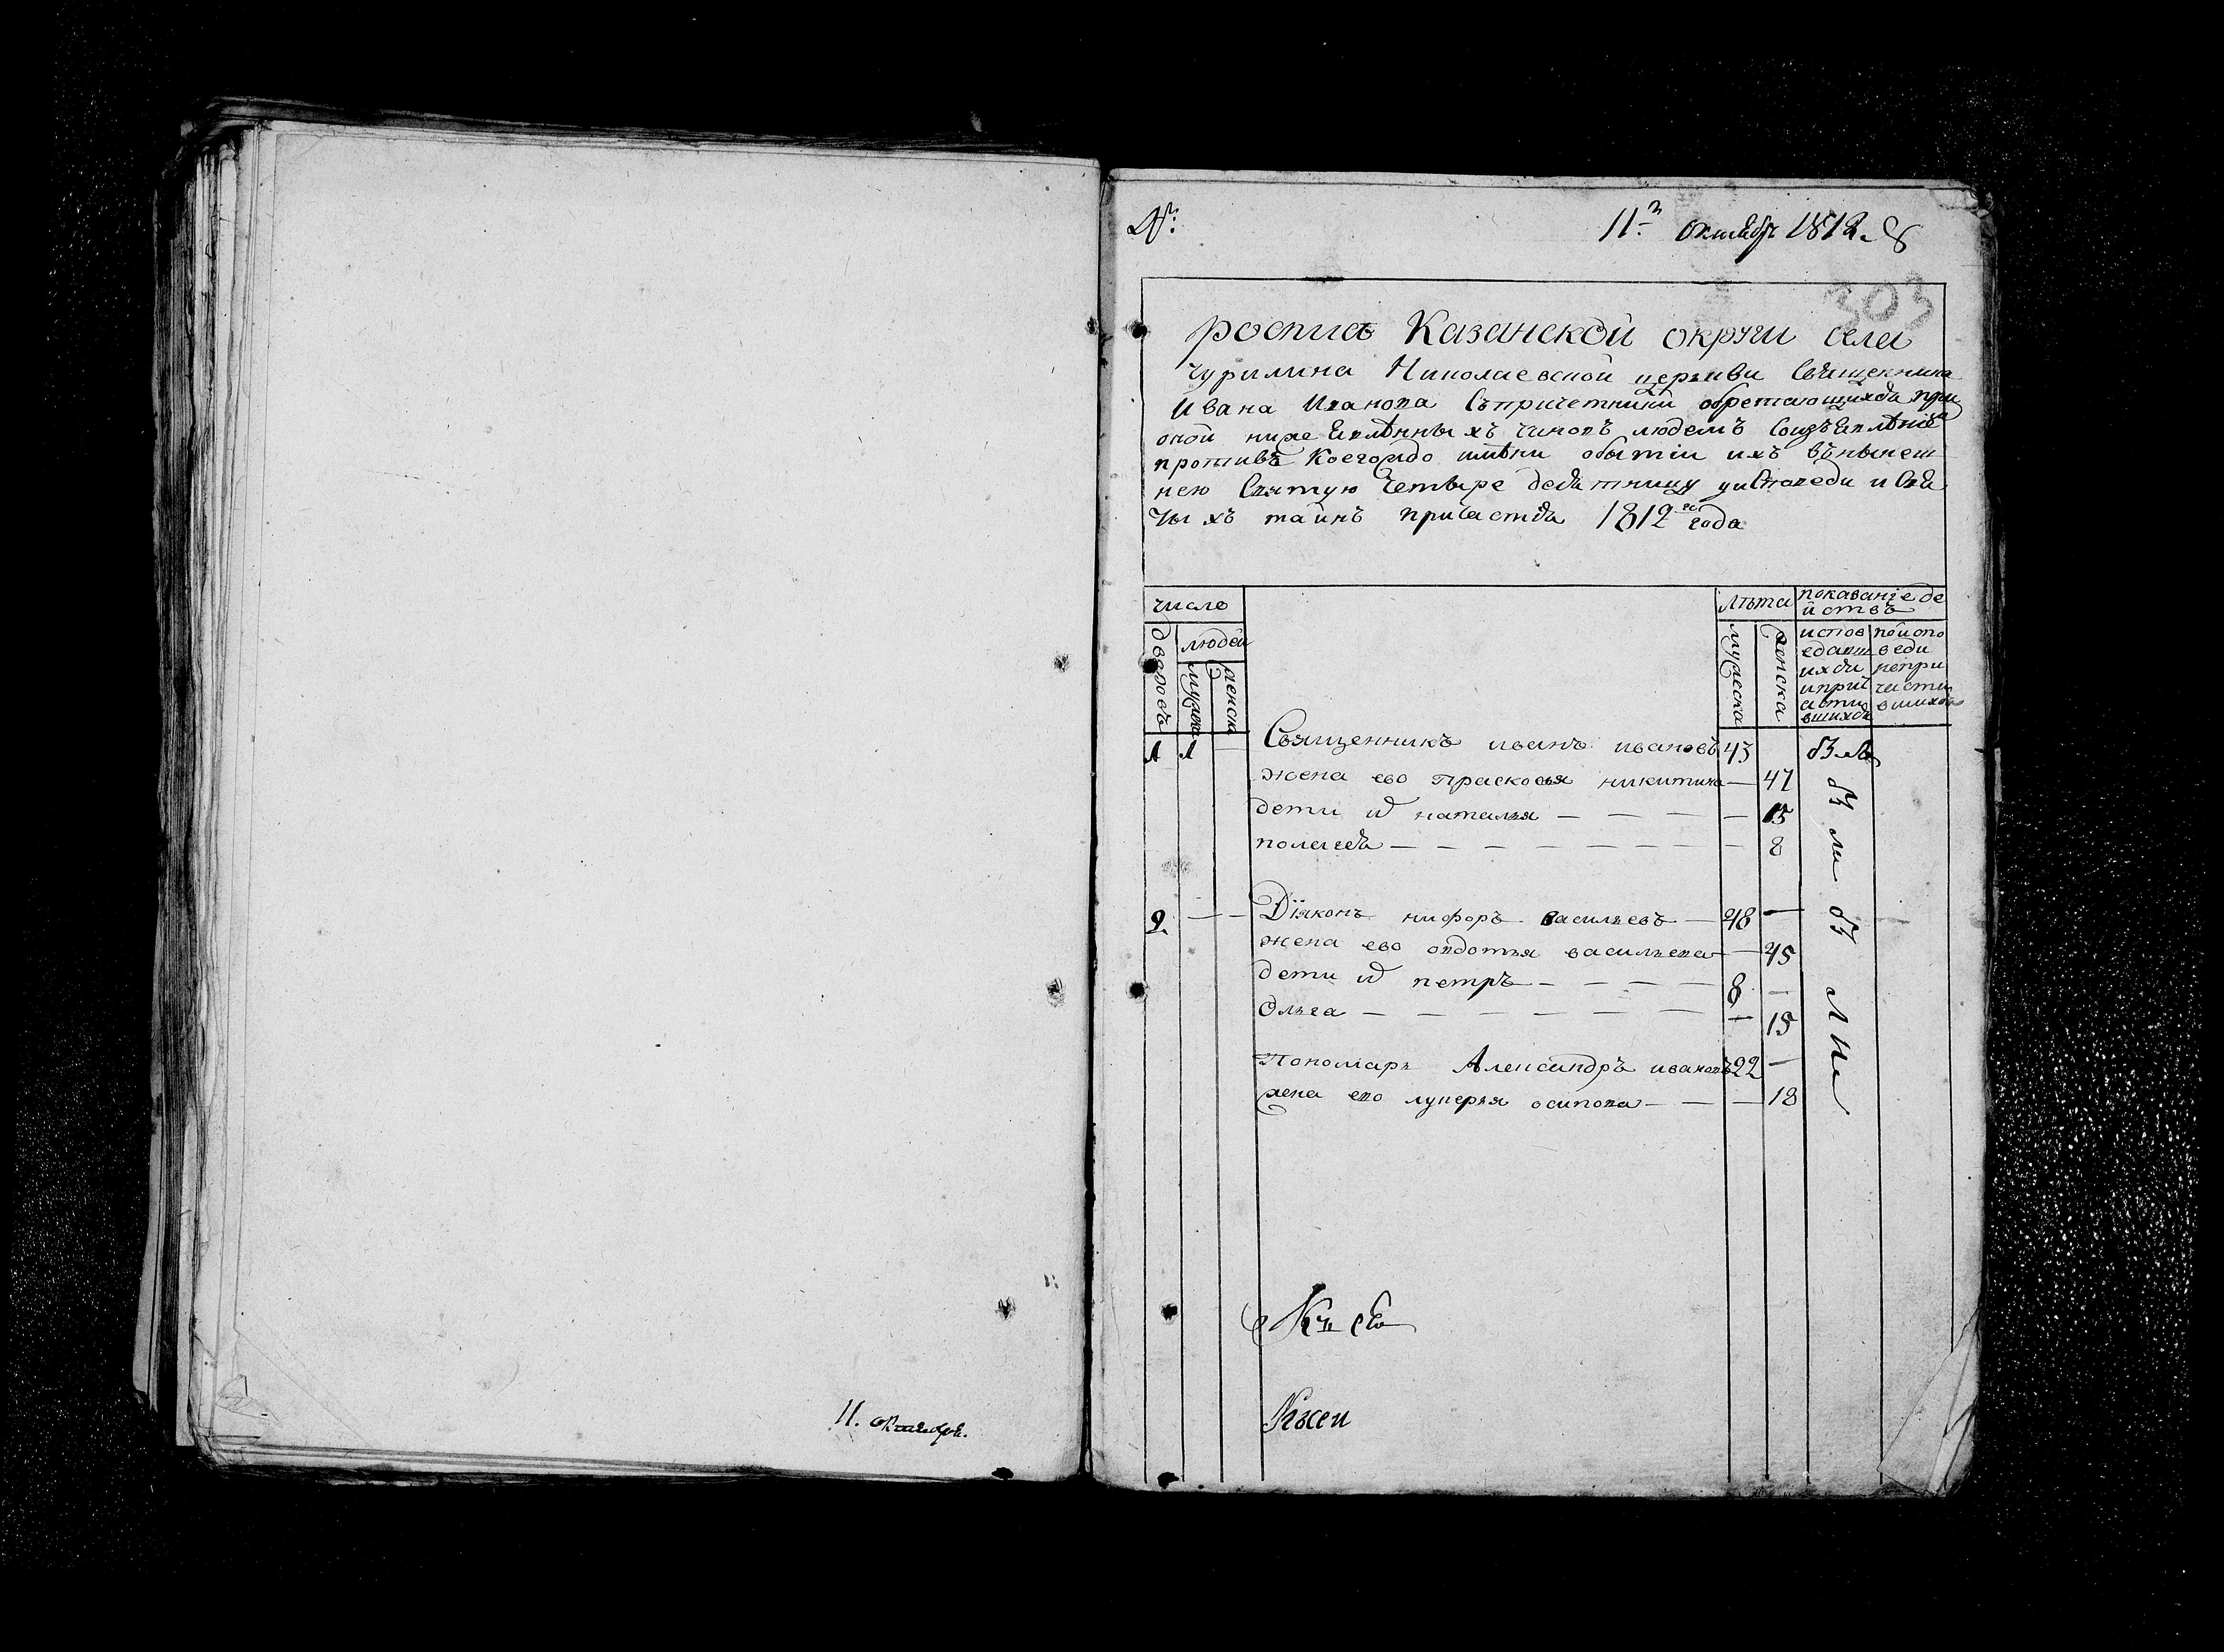 11. октября.
№:
11 октября 1812
303
роспись Казанской округи села
Чурилина Николаевской церкви Священника
Ивана Иванова Съпричетники обретающихся при
оной ниже явлѣнныхъ чиновъ людемъ Соизъявлѣниемъ
противъ Коегождо имѣни о бытіи ихъ въ нынеш
нею Святую Четыредесятницу у исповеди и Свя
тыхъ тайнъ причастья 1812 го года
число
лѣта
показаніе де
йствъ
дворовъ
людей
мужеска
женска
мужеска
женска
испов
едавш
ихся
и прич
асти
вшихся
по испо
веди
непри
части
вшихся
1 1 Священникъ иванъ ивановъ 43
жена ево Праскоовья никитина — 47
дети их наталья — — — — — 15
пелагея — — — — — — — — 8
2 — — Діяконъ нифоръ васильевъ — 48 —
жена ево овдотья васильева — 45
дети их петръ — — — — — 8 —
Ольга — — — — — — — — 15
Пономарь Александръ ивановъ 22 —
жена ево лукерья осипова — — — 18
были
были
были